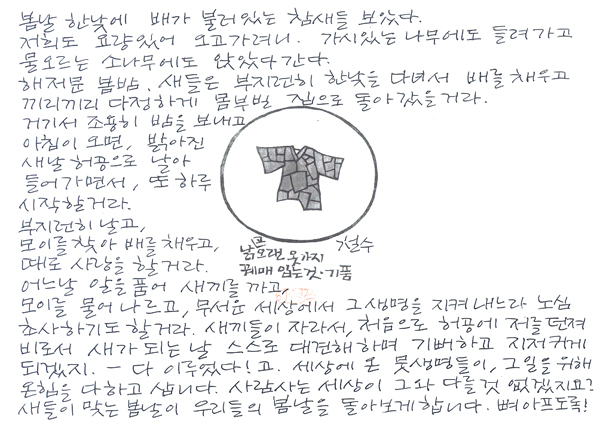 봄날 한낮에 배가 불러있는 참새들 보았다.
저희도 요량있어 오고가려니. 가시있는 나무에도 들려가고
물오르는 소나무에도 앉았다간다.
해저문 봄밤. 새들은 부지런히 한낮을 다녀서 배를 채우고
끼리끼리 다정하게 몸부벼 집으로 돌아갔을거라.
거기서 조용히 밤을 보내고
아침이 오면, 밝아진
새날 허공으로 날아
들어가면서, 또 하루
시작할거라.
부지런히 날고,
모이를 찾아 배를 채우고,
때로 사랑을 할거라.
어느날 알을 품어 새끼를 까고,
모이를 물어 나르고, 무서운 세상에서 그 생명을 지켜내느라 노심
초사하기도 할거라. 새끼들이 자라서, 처음으로 허공에 저를 던져
비로서 새가 되는 날 스스로 대견해하며 기뻐하고 지저귀게
되겠지. - 다 이루었다! 고. 세상에 온 뭇생명들이, 그일을 위해
온힘을 다하고 삽니다. 사람사는 세상이 그와 다를것 없겠지요?
새들이 맞는 봄날이 우리들의 봄날을 돌아보게합니다. 뼈아프도록!
낡은
오랜 옷가지
꿰매 입는것·기품
철수